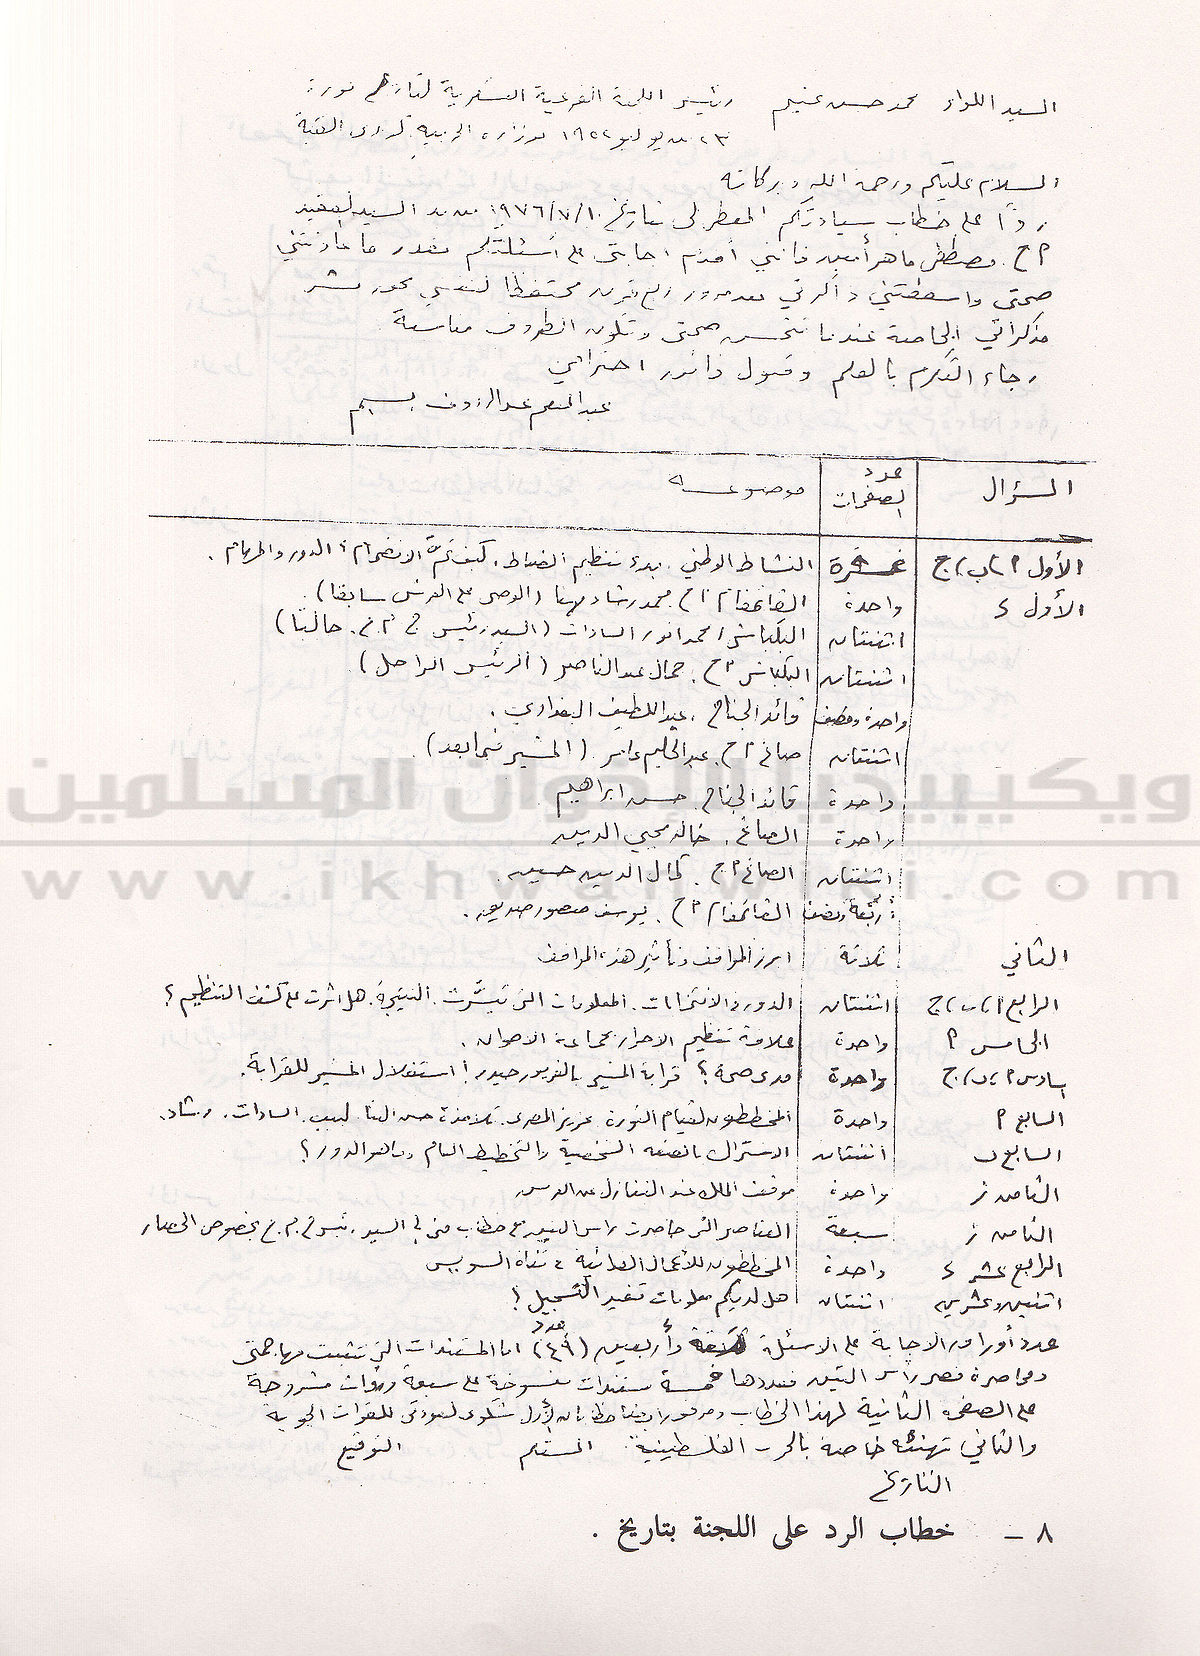 السيد اللواء محمد حسن غنيم رئيس اللجنة الفرعية العسكرية لتاريخ ثورة
٢٣ من يوليو ١٩٥٢ بوزارة الحربية كوبرى القبة
السلام عليكم ورحمة الله وبركاته
ردًا على خطاب سيادتكم المعطر لى بتاريخ ١٩٧٦/٧/١٠ بيد السيد العقيد
أ ح. مصطفى ماهر أمين فاننى أقدم اجابتى على أسئلتكم بقدر ما عاونتنى
صحتى واسعفتنى ذاكرتى بعد مرور ربع قرن محتفظا لنفسى بحق نشر
مذكراتى الخاصة عندما تتحسن صحتى وتكون الظروف مناسبة
رجاء التكرم بالعلم وقبول وافر احترامى
عبد المنعم عبد الرؤوف بسيم
السؤال عدد الصفحات موضوعـــه
الأول أ، ب، ج عشرة النشاط الوطنى. بدء تنظيم الضباط. كيف تمَّ الانضمام؟ الدور والمهام.
الأول د واحدة القائمقام أ ح. محمد رشاد مهنا (الوصى على العرش سابقا).
اثنتان البكباشى محمد انور السادات (السيد رئيس ج.م.ع. حاليًا)
اثنتان البكباشى أ ح. جمال عبد الناصر (الرئيس الراحل).
واحدة ونصف قائد الجناح. عبد اللطيف البغدادى.
اثنتان صاغ أ ح. عبد الحكيم عامر. (المشير فيما بعد).
واحدة قائد الجناح. حسن ابراهيم
واحدة الصاغ. خالد محيى الدين
اثنتان الصاغ أ ح. كمال الدين حسين.
أربعة ونصف القائمقام أ ح. يوسف منصور صديق.
الثانى ثلاثة ابرز المواقف وتأثير هذه المواقف
الرابع أ، ب، ج اثنتان الدور والالتزامات. المعلومات التى تيسَّرت. النتيجة. هل اثرت على كشف التنظيم؟
الخامس أ واحدة علاقة تنظيم الاحرار بجماعة الاخوان.
سادس أ، ب، ج واحدة مدى صحة؟ قرابة المشير بالفريق حيدر! استغلال المشير للقرابة.
السابع أ واحدة المخططون لقيام الثورة. عزيز المصرى. تلامذة حسن البنا. لبيب. السادات. رشاد.
السابع ب اثنتان الاشتراك بالصفة الشخصية والتخطيط العام وما هو الدور؟
الثامن ز واحدة موقف الملك عند التنازل عن العرش
الثامن ز سبعة العناصر التى حاصرت رأس التين مع خطاب منى الى السيد رئيس ج.م.ع بخصوص الحصار
الرابع عشر د واحدة المخططون للأعمال الفدائية فى قناة السويس
اثنين وعشرين اثنتان هل لديكم معلومات تفيد التسجيل؟
عدد أوراق الاجابة على الاسئلة وأربعين (٤٩) عدد اما المستندات التى تثبت مهاجمتى
ومحاصرة قصر رأس التين فعددها خمسة مستندات منسوخة على سبعة ورقات مشروحة
على الصفحة الثانية لهذا الخطاب ومرفق أيضا خطابان الأول شكوى لعودتى للقوات الجوية
والثانى تهنئة خاصة بالحرب الفلسطينية. المستلم التوقيع
التاريخ
٨ - خطاب الرد على اللجنة بتاريخ .
ويكيبيديا الإخوان المسلمين
www.ikhwanwiki.com